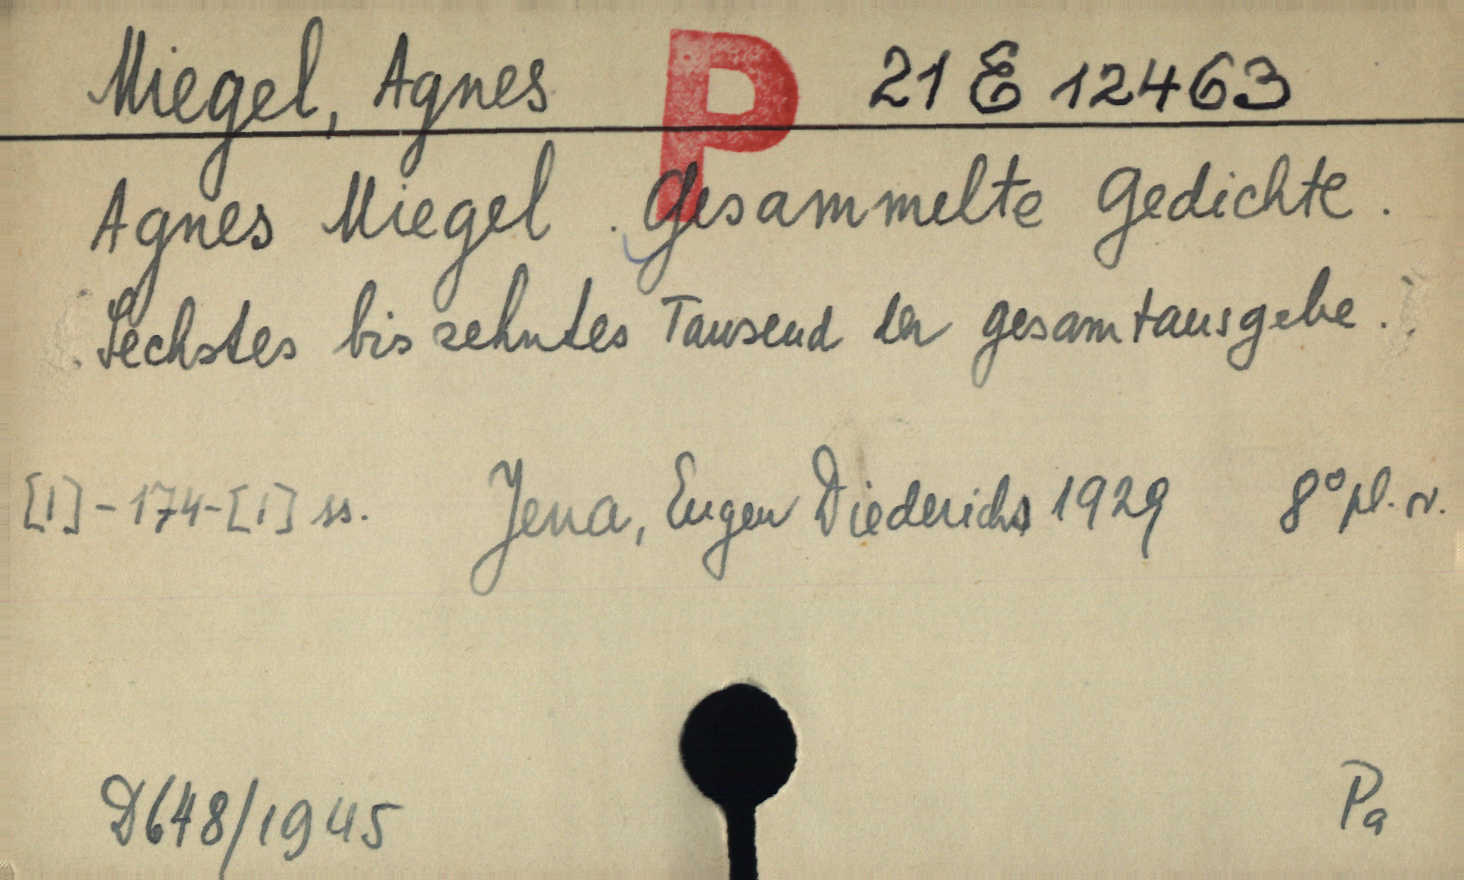 Miegel, Agnes P 21 E 12463
Agnes Miegel. Gesammelte Gedichte.
Sechstes bis zehntes Tausend der Gesamtausgabe.
[1]-174-[1] ss. Jena, Eugen Diederichs 1929 8° pl. v.
D648/1945 Pa